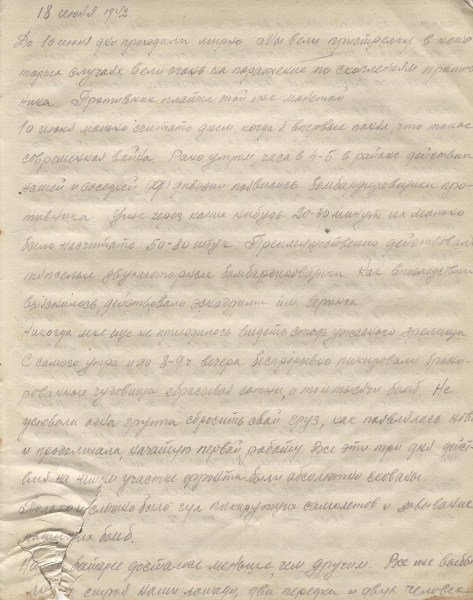 18 июня 1942
До 10 июня дни проходили мирно. Мы вели пристрелку в неко
торых случаях вели огонь на поражение по скоплениям против
ника. Противник платил той же монетой
10 июня можно считать днем, когда я впервые понял что такое
современная война. Рано утром часа в 4-5 в районе действий
нашей и соседней дивизии появились бомбардировщики про
тивника. Уже через какие нибудь 20-30 минут их можно
было насчитать 50-80 штук. Преимущественно действовали
тяжелые двухмоторные бомбардировщики. Как впоследствии
выяснилось, действовали эскадрильи им Геринга
Никогда мне еще не приходилось видеть столь ужасного зрелища
С самого утра и до 8-9ч вечера беспрерывно пикировали брони
рованные чудовища сбрасывая сотни, а то и тысячи бомб. Не
успевала одна группа сбросить свой груз, как появлялась новая
и продолжала начатую первой работу. Все эти три дня дейст
вия на нашем участке фронта были абсолютно скованы
Только и слышно было гул пикирующих самолетов и завывание
падающих бомб.
батарее досталось меньше, чем другим. Все же выбы
ли из строя наши лошади, два передка и двух человек